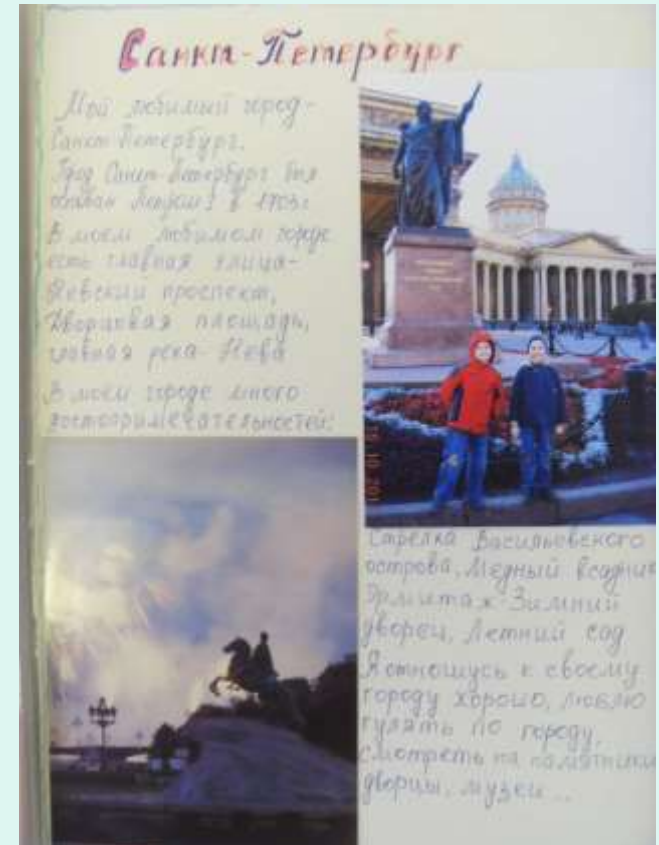 Санкт-Петербург
Мой любимый город -
Санкт-Петербург.
Город Санкт-Петербург был
основан Петром I в 1703г
В моем любимом городе
есть главная улица-
Невский проспект,
Дворцовая площадь,
главная река- Нева
В моем городе много
достопримечательностей:
Стрелка Васильевского
острова, Медный всадник
Эрмитаж-Зимний
дворец, Летний сад.
Я отношусь к своему
городу хорошо, люблю
гулять по городу,
смотреть на памятники
дворцы, музеи...